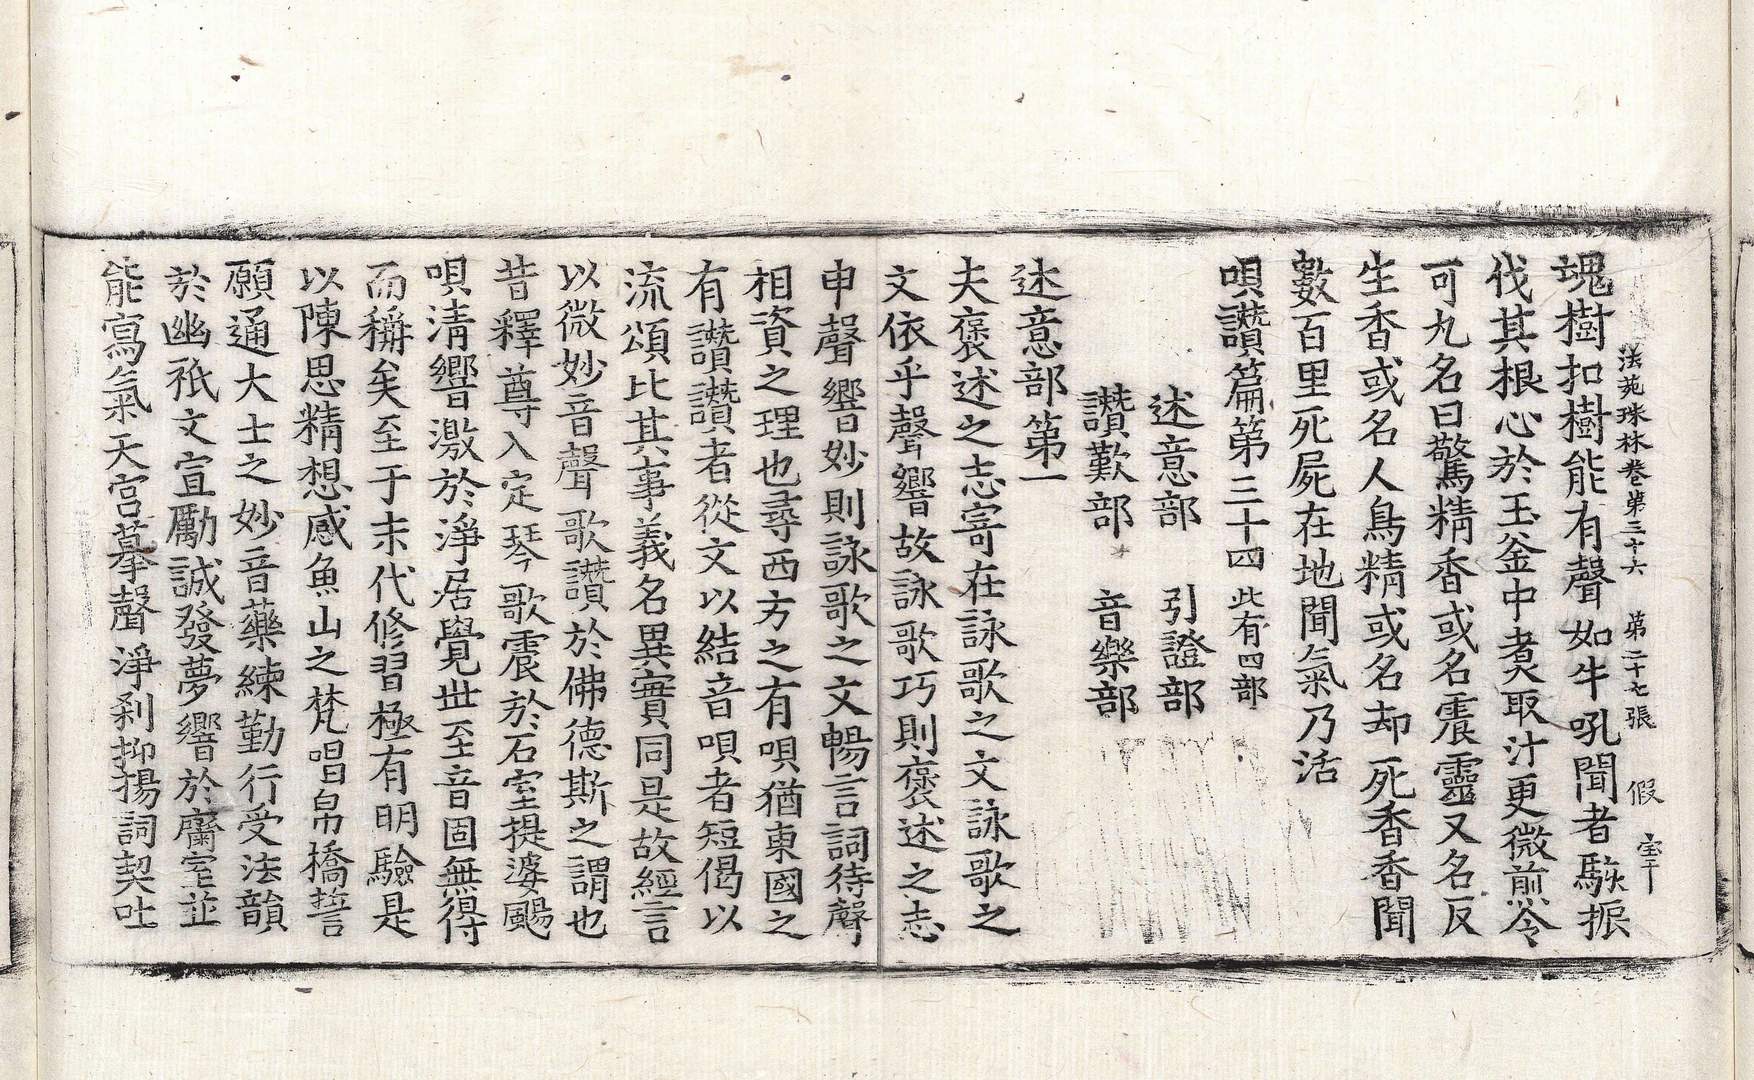 法苑珠林卷第三十六　第二十七張　假
塊樹扣樹能有聲如牛吼聞者駭振
伐其根心於玉釜中煑取汁更微煎令
可丸名曰驚精香或名震靈又名反
生香或名人鳥精或名却死香香聞
數百里死屍在地聞氣乃活
唄讚篇第三十四 此有四部
述意部　引證部
讚歎部　音樂部
述意部第一
夫褒述之志寄在詠歌之文詠歌之
文依乎聲響故詠歌巧則褒述之志
申聲響妙則詠歌之文暢言詞待聲
相資之理也尋西方之有唄猶東國之
有讚讚者從文以結音唄者短偈以
流頌比其事義名異實同是故經言
以微妙音聲歌讚於佛德斯之謂也
昔釋尊入定琴歌震於石室提婆颺
唄清響激於淨居覺世至音固無得
而稱矣至于末代修習極有明驗是
以陳思精想感魚山之梵唱帛橋誓
願通大士之妙音藥練勤行受法韻
於幽祇文宣勵誠發夢響於齋室並
能寫氣天宮摹聲淨刹抑揚詞契吐